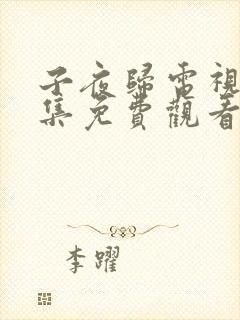 子夜歸電視
集免費觀看
李躍